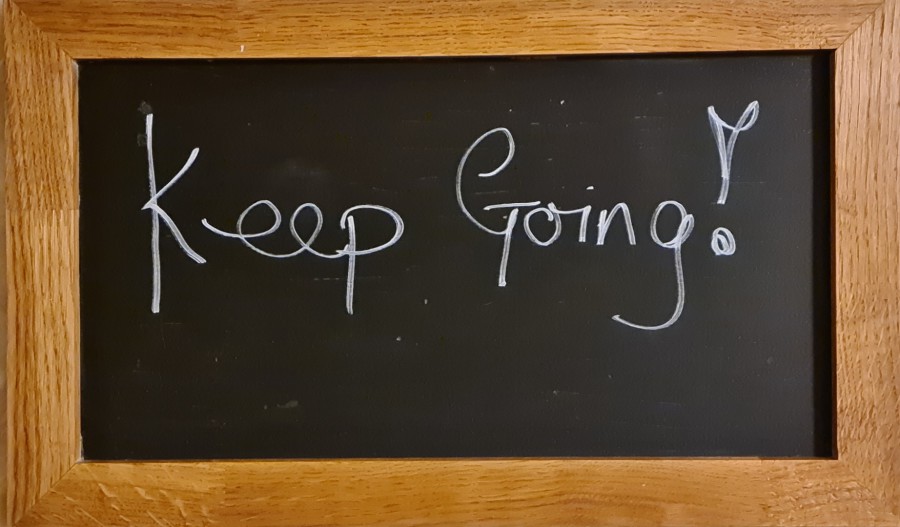 Keep Going!